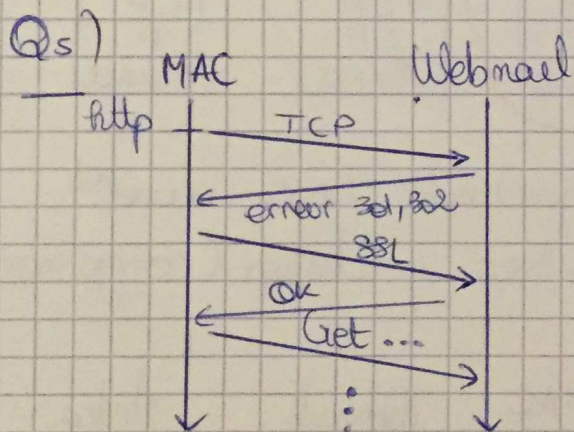 Q5)
MAC Webmail
http TCP
erreur 301, 302
SSL
OK
Get ...